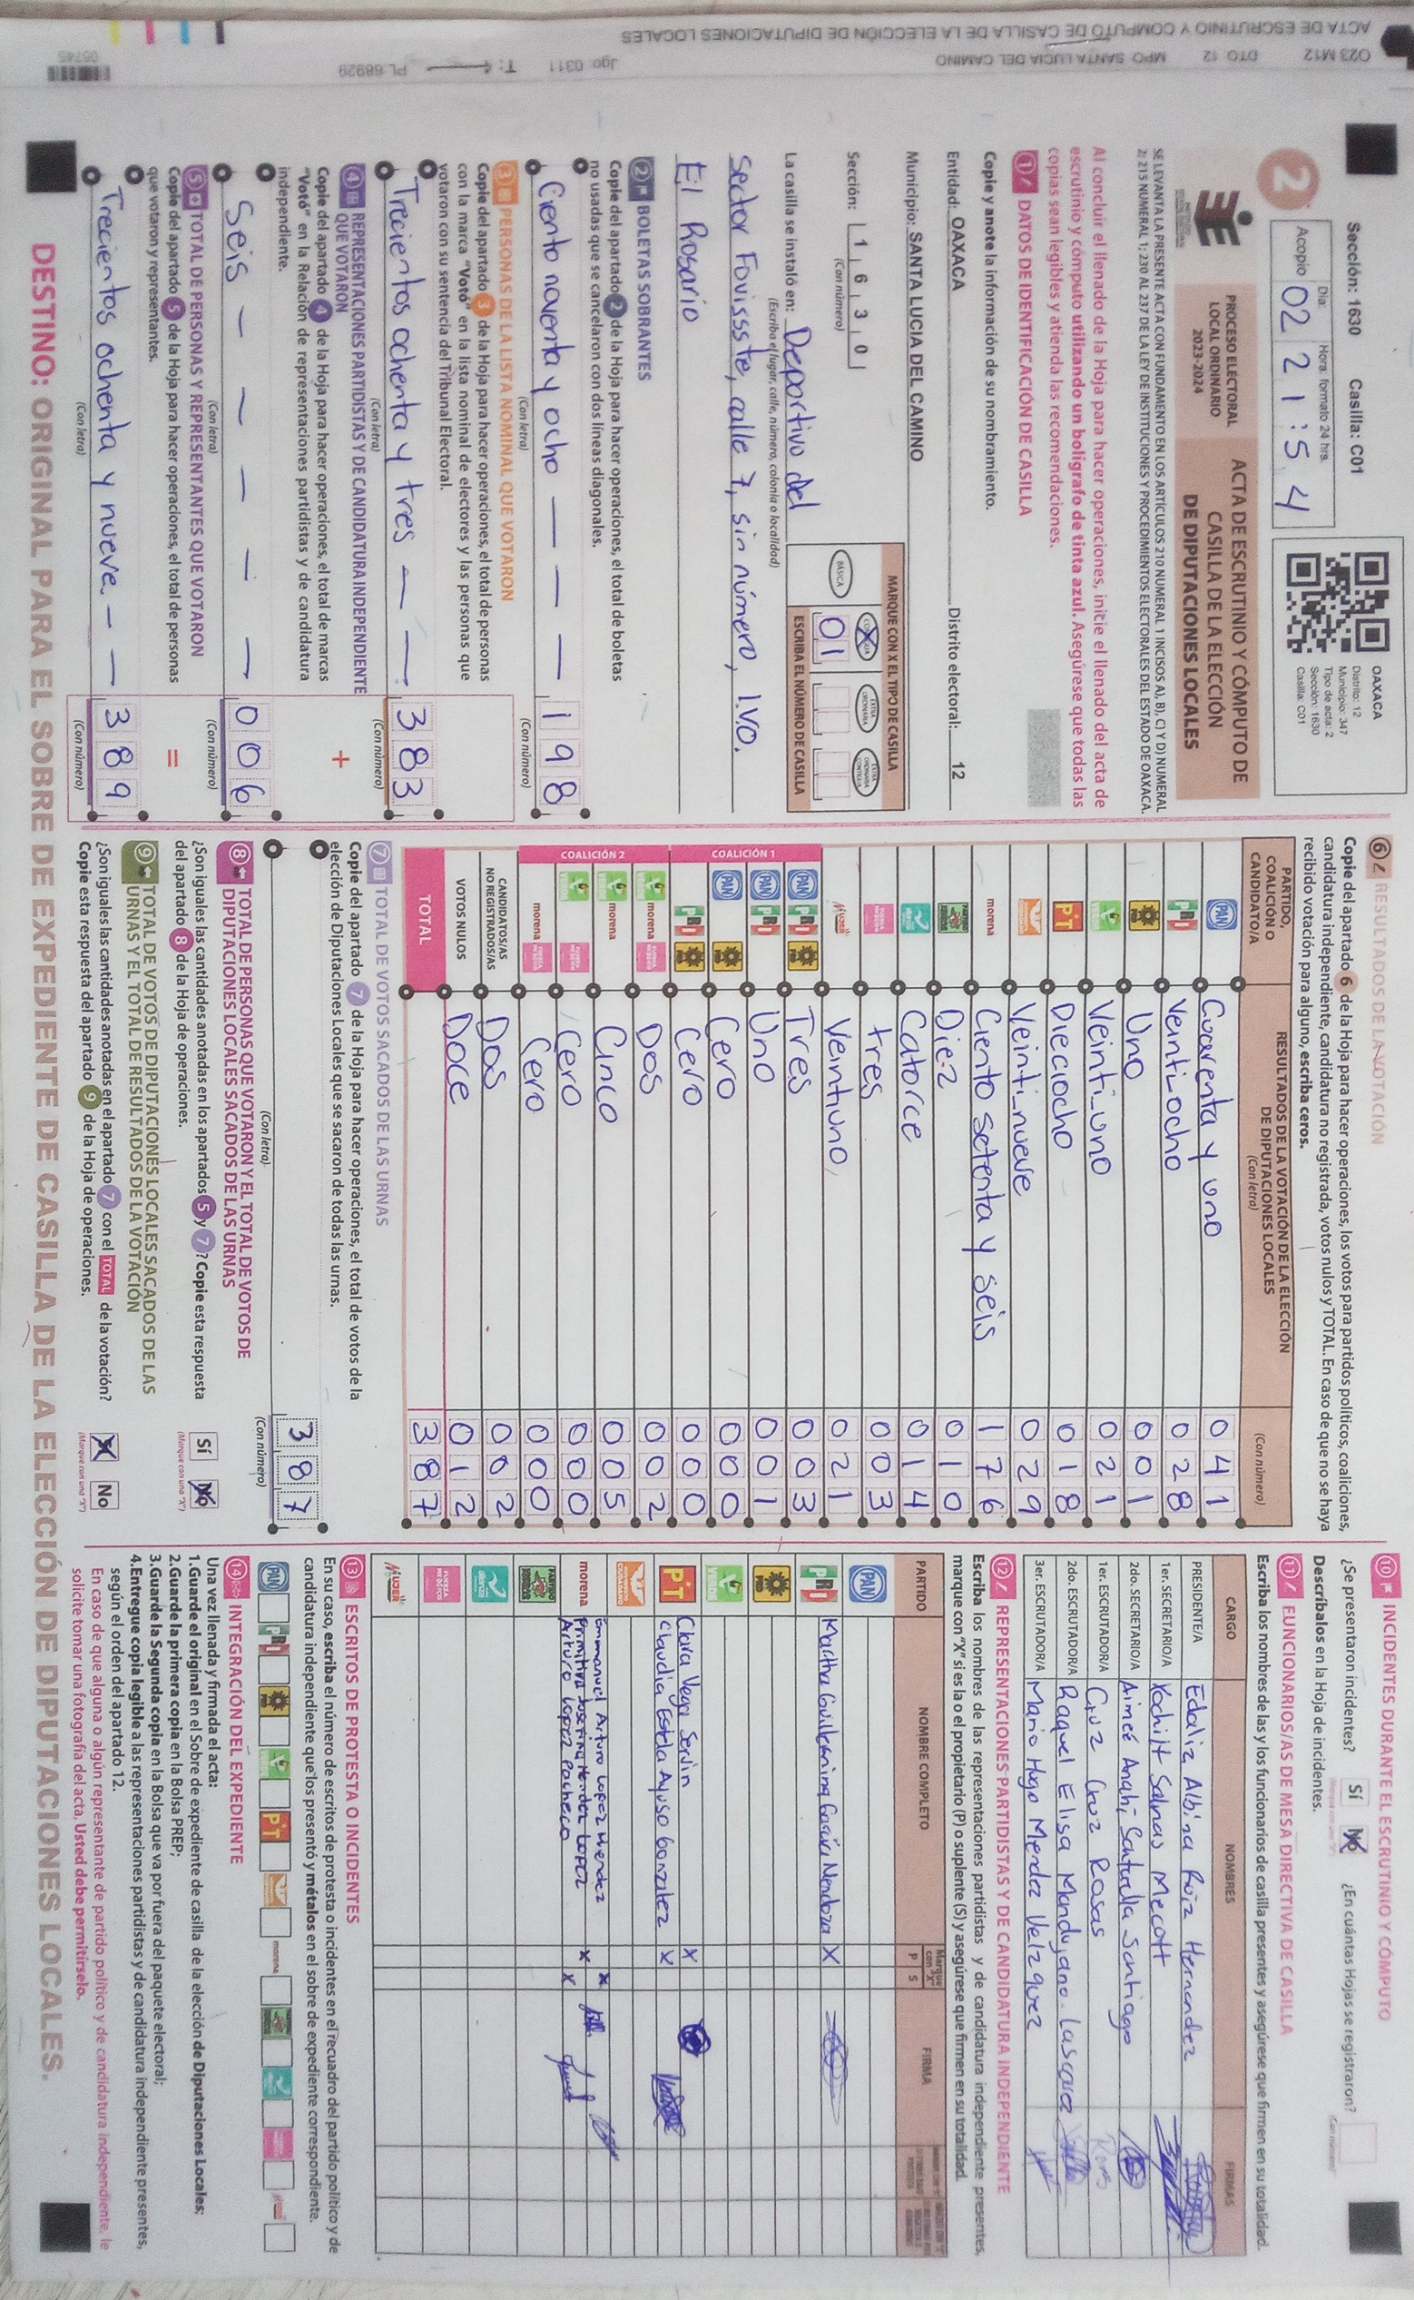 Sección: 1630 Casilla: C01
Día: Hora: formato 24 hrs.
Acopio 02 21:54
OAXACA
Distrito: 12
Municipio: 347
Tipo de acta: 2
Sección: 1630
Casilla: C01
2
PROCESO ELECTORAL
LOCAL ORDINARIO
2023-2024
ACTA DE ESCRUTINIO Y CÓMPUTO DE
CASILLA DE LA ELECCIÓN
DE DIPUTACIONES LOCALES
SE LEVANTA LA PRESENTE ACTA CON FUNDAMENTO EN LOS ARTÍCULOS 210 NUMERAL 1 INCISOS A), B), C) Y D) NUMERAL
2; 215 NUMERAL 1; 230 AL 237 DE LA LEY DE INSTITUCIONES Y PROCEDIMIENTOS ELECTORALES DEL ESTADO DE OAXACA.
Al concluir el llenado de la Hoja para hacer operaciones, inicie el llenado del acta de
escrutinio y cómputo utilizando un bolígrafo de tinta azul. Asegúrese que todas las
copias sean legibles y atienda las recomendaciones.
1 DATOS DE IDENTIFICACIÓN DE CASILLA
Copie y anote la información de su nombramiento.
Entidad: OAXACA Distrito electoral: 12
Municipio: SANTA LUCIA DEL CAMINO
Sección: 1 6 3 0
(Con número)
MARQUE CON X EL TIPO DE CASILLA
BÁSICA
01
ESCRIBA EL NÚMERO DE CASILLA
La casilla se instaló en: Deportivo del
(Escriba el lugar, calle, número, colonia o localidad)
Sector Fovissste, calle 7, sin número, I.V.O.
El Rosario
2 BOLETAS SOBRANTES
Copie del apartado 2 de la Hoja para hacer operaciones, el total de boletas
no usadas que se cancelaron con dos líneas diagonales.
Ciento noventa y ocho 198
(Con letra) (Con número)
3 PERSONAS DE LA LISTA NOMINAL QUE VOTARON
Copie del apartado 3 de la Hoja para hacer operaciones, el total de personas
con la marca "Votó" en la lista nominal de electores y las personas que
votaron con su sentencia del Tribunal Electoral.
Trecientos ochenta y tres 383
(Con letra) (Con número)
4 REPRESENTACIONES PARTIDISTAS Y DE CANDIDATURA INDEPENDIENTE
QUE VOTARON
Copie del apartado 4 de la Hoja para hacer operaciones, el total de marcas
"Votó" en la Relación de representaciones partidistas y de candidatura
independiente.
+
Seis 006
(Con letra) (Con número)
5 TOTAL DE PERSONAS Y REPRESENTANTES QUE VOTARON
Copie del apartado 5 de la Hoja para hacer operaciones, el total de personas
que votaron y representantes.
=
Trecientos ochenta y nueve. 389
(Con letra) (Con número)
6 RESULTADOS DE LA VOTACIÓN
Copie del apartado 6 de la Hoja para hacer operaciones, los votos para partidos políticos, coaliciones,
candidatura independiente, candidatura no registrada, votos nulos y TOTAL. En caso de que no se haya
recibido votación para alguno, escriba ceros.
PARTIDO,
COALICIÓN O
CANDIDATO/A
RESULTADOS DE LA VOTACIÓN DE LA ELECCIÓN
DE DIPUTACIONES LOCALES
(Con letra) (Con número)
PAN Cuarenta y uno 041
PRI Veinti-ocho 028
PRD Uno 001
VERDE Veinti-uno 021
PT Dieciocho 018
Veinti-nueve 029
morena Ciento setenta y seis 176
Diez 010
Catorce 014
tres 003
Mujer Veintiuno 021
COALICIÓN 1
PAN PRI PRD Tres 003
PAN PRI Uno 001
PAN PRD Cero 000
PRI PRD Cero 000
COALICIÓN 2
morena Dos 002
morena Cinco 005
Cero 000
morena Cero 000
CANDIDATOS/AS
NO REGISTRADOS/AS Dos 002
VOTOS NULOS Doce 012
TOTAL 387
7 TOTAL DE VOTOS SACADOS DE LAS URNAS
Copie del apartado 7 de la Hoja para hacer operaciones, el total de votos de la
elección de Diputaciones Locales que se sacaron de todas las urnas.
387
(Con letra) (Con número)
8 TOTAL DE PERSONAS QUE VOTARON Y EL TOTAL DE VOTOS DE
DIPUTACIONES LOCALES SACADOS DE LAS URNAS
¿Son iguales las cantidades anotadas en los apartados 5 y 7? Copie esta respuesta
del apartado 8 de la Hoja de operaciones.
Sí No
(Marque con una "X")
9 TOTAL DE VOTOS DE DIPUTACIONES LOCALES SACADOS DE LAS
URNAS Y EL TOTAL DE RESULTADOS DE LA VOTACIÓN
¿Son iguales las cantidades anotadas en el apartado 7 con el TOTAL de la votación?
Copie esta respuesta del apartado 9 de la Hoja de operaciones.
No
(Marque con una "X")
10 INCIDENTES DURANTE EL ESCRUTINIO Y CÓMPUTO
¿Se presentaron incidentes? Sí No ¿En cuántas Hojas se registraron?
Descríbalos en la Hoja de incidentes.
11 FUNCIONARIOS/AS DE MESA DIRECTIVA DE CASILLA
Escriba los nombres de las y los funcionarios de casilla presentes y asegúrese que firmen en su totalidad.
CARGO NOMBRES FIRMAS
PRESIDENTE/A Edaliz Albina Ruiz Hernandez
1er. SECRETARIO/A Xochilt Salinas Mecott
2do. SECRETARIO/A Aimeé Anahi Santaella Santiago
1er. ESCRUTADOR/A Cruz Cruz Rosas
2do. ESCRUTADOR/A Raquel Elisa Mandujano Lascarez
3er. ESCRUTADOR/A Mario Hugo Mendez Velazquez
12 REPRESENTACIONES PARTIDISTAS Y DE CANDIDATURA INDEPENDIENTE
Escriba los nombres de las representaciones partidistas y de candidatura independiente presentes,
marque con "X" si es la o el propietario (P) o suplente (S) y asegúrese que firmen en su totalidad.
PARTIDO NOMBRE COMPLETO Marque con "X" P S FIRMA
PAN
PRI Martha Guillermina García Mendoza X
PRD
VERDE
PT Clara Vega Serlin X
Claudia Estela Ayuso González X
Emmanuel Arturo Lopez Mendez X
morena Primitiva Josefina Mendez Lopez X
Arturo Lopez Pacheco X
Mujer
13 ESCRITOS DE PROTESTA O INCIDENTES
En su caso, escriba el número de escritos de protesta o incidentes en el recuadro del partido político y de
candidatura independiente que los presentó y métalos en el sobre de expediente correspondiente.
PAN PRI PRD VERDE PT morena
14 INTEGRACIÓN DEL EXPEDIENTE
Una vez llenada y firmada el acta:
1.Guarde el original en el Sobre de expediente de casilla de la elección de Diputaciones Locales;
2.Guarde la primera copia en la Bolsa PREP;
3.Guarde la Segunda copia en la Bolsa que va por fuera del paquete electoral;
4.Entregue copia legible a las representaciones partidistas y de candidatura independiente presentes,
según el orden del apartado 12.
En caso de que alguna o algún representante de partido político y de candidatura independiente, le
solicite tomar una fotografía del acta, Usted debe permitírselo.
DESTINO: ORIGINAL PARA EL SOBRE DE EXPEDIENTE DE CASILLA DE LA ELECCIÓN DE DIPUTACIONES LOCALES.
ACTA DE ESCRUTINIO Y COMPUTO DE CASILLA DE LA ELECCIÓN DE DIPUTACIONES LOCALES
023 M12 DTO 12 MPO SANTA LUCIA DEL CAMINO Jgo 0311 T: PL 68929
05745